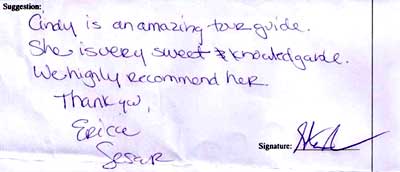 Suggestion:
Cindy is an amazing tour guide.
She is very sweet & knowledgable.
We highly recommend her.
Thank you,
Erica
Signature: